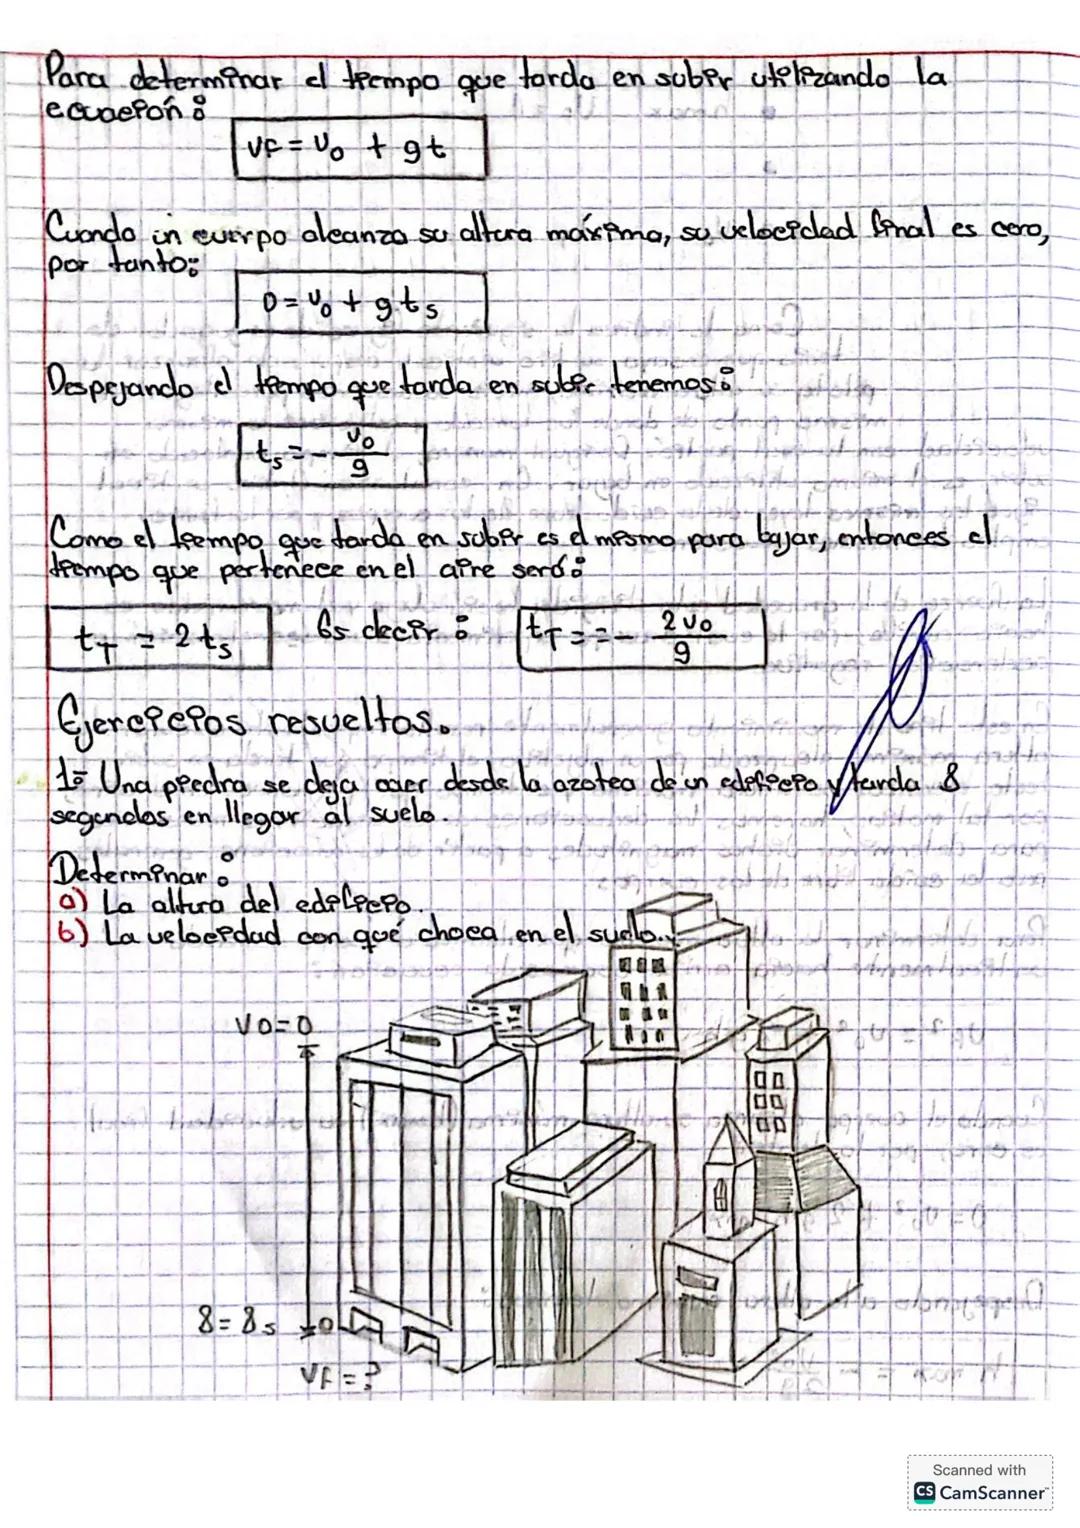 Para determinar el tiempo que tarda en subir utilizando la
ecuación:
VF = Vo + gt
Cuando in cuerpo alcanza su altura máxima, su velocidad final es cero,
por tanto:
0 = Vo + g.ts
Despejando el tiempo que tarda en subir tenemos:
ts = - Vo/g
Como el tiempo que tarda en subir es el mismo para bajar, entonces el
tiempo que pertenece en el aire será:
tT = 2ts Es decir: tT = = - 2Vo/g
Ejercicios resueltos.
1: Una piedra se deja caer desde la azotea de un edificio y tarda 8
segundos en llegar al suelo.
Determinar:
a) La altura del edificio.
b) La velocidad con qué choca en el suelo.
VO=0
8=8s
VF=?
Scanned with
CS CamScanner